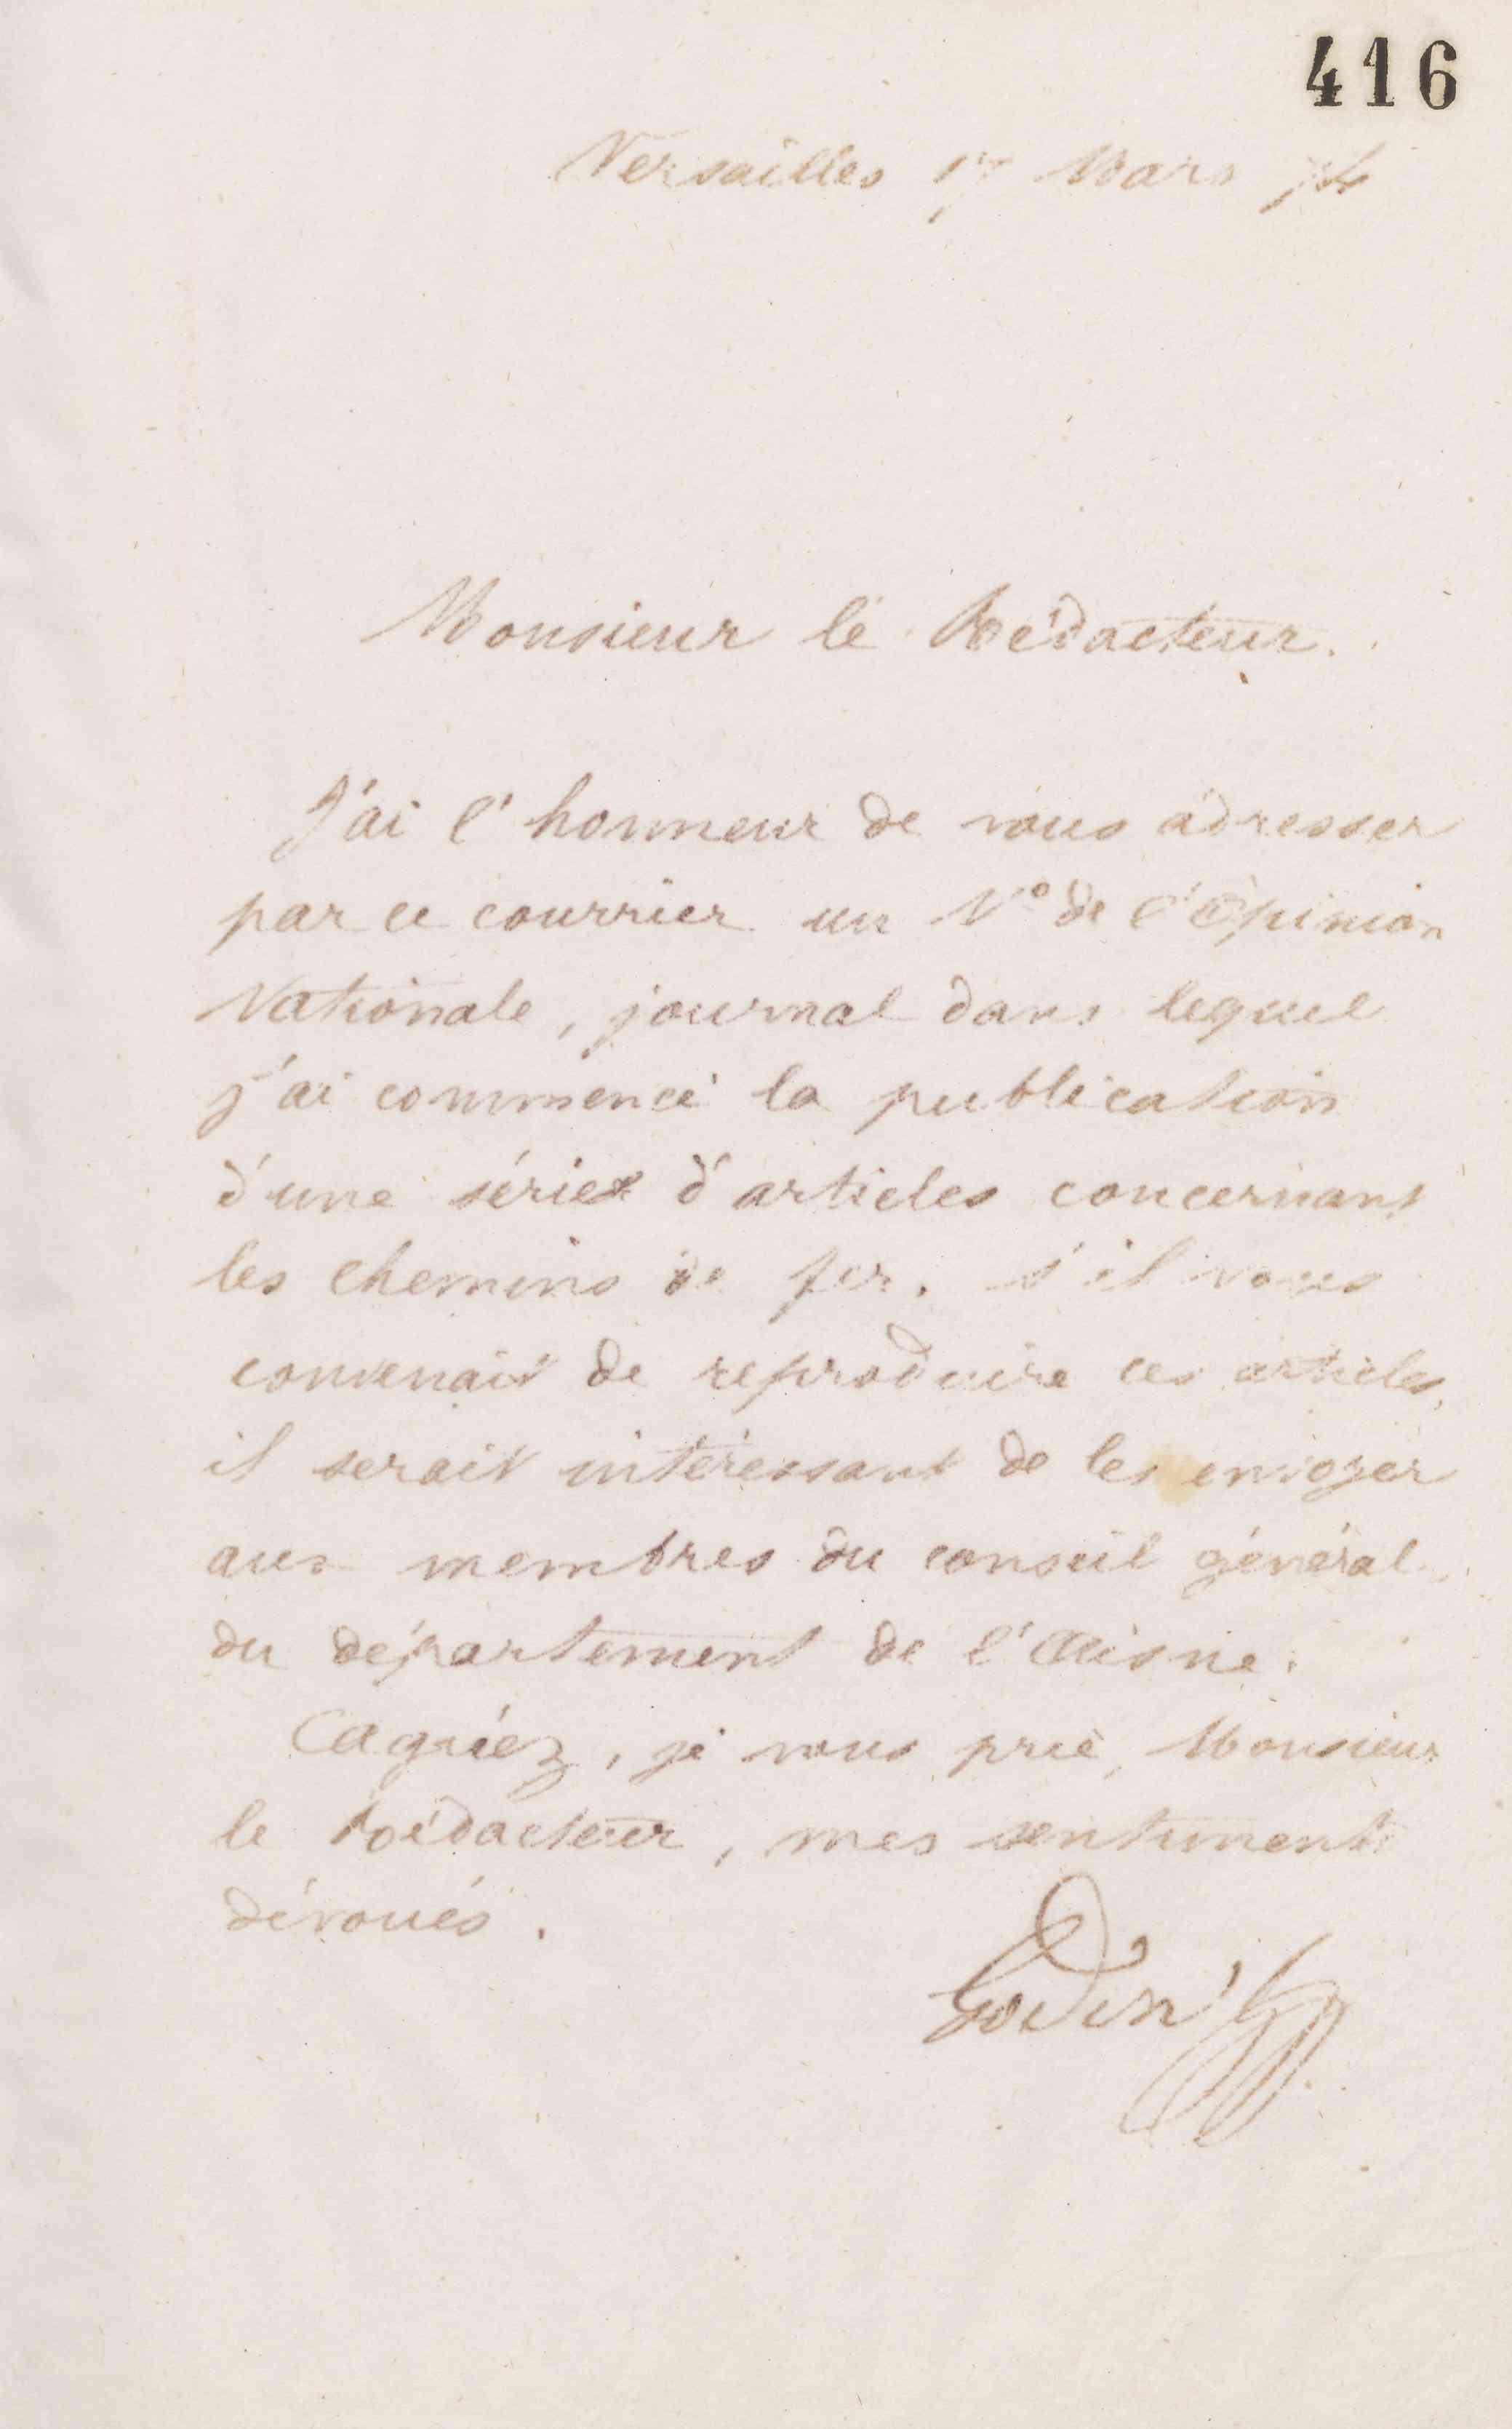 416
Versailles 17 Mars 74
Monsieur le Rédacteur.
J'ai l'honneur de vous adresser
par ce courrier un N° de l'Opinion
Nationale, journal dans lequel
j'ai commencé la publication
d'une série d'articles concernant
les chemins de fer. S'il vous
convenait de reproduire ces articles,
il serait intéressant de les envoyer
aux membres du conseil général
du département de l'Aisne.
Agréez, je vous prie, Monsieur
le Rédacteur, mes sentiments
dévoués.
Godin